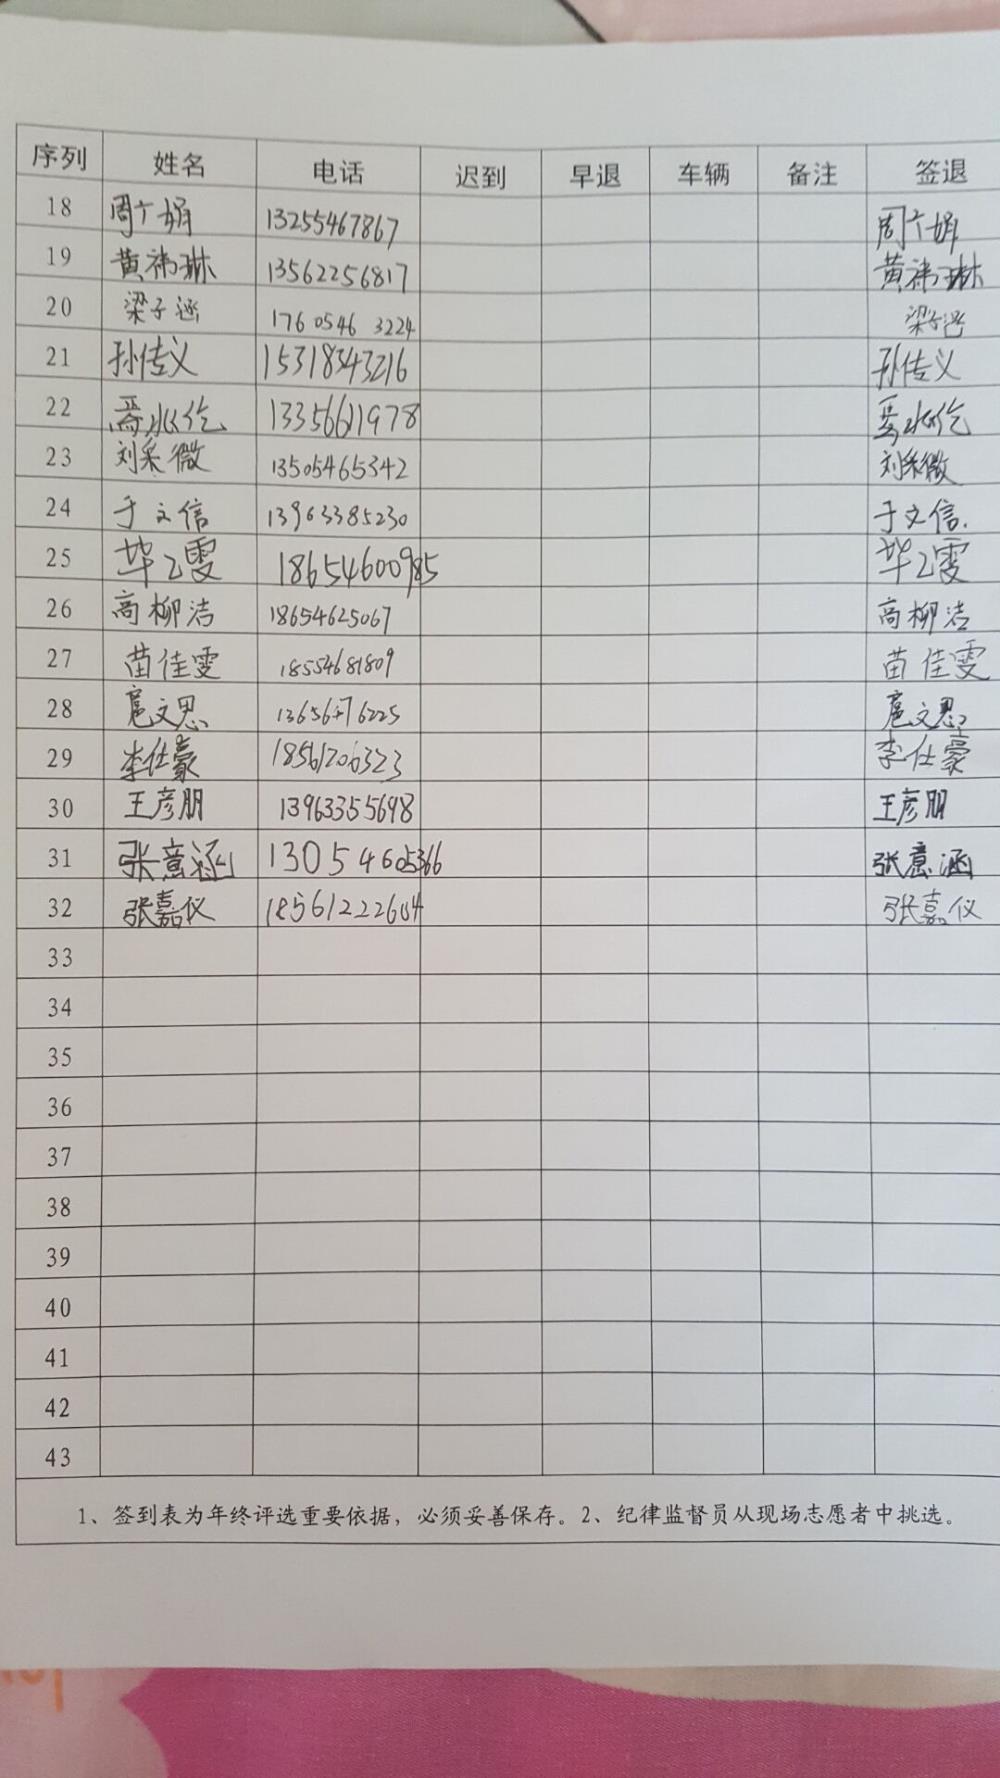 序列 姓名 电话 迟到 早退 车辆 备注 签退
18 周广娟 13255467867 周广娟
19 黄祎琳 13562256817 黄祎琳
20 梁子涵 17605463224 梁子涵
21 孙传义 15318343216 孙传义
22 13356611978
23 刘采微 13505465342 刘采微
24 于文信 13963385230 于文信.
25 毕乙雯 18654600985 毕乙雯
26 高柳洁 18654625067 高柳洁
27 苗佳雯 18554681809 苗佳雯
28 扈文思 扈文思
29 李仕豪 18561206323 李仕豪
30 王彦朋 13963355698 王彦朋
31 张意涵 13054605366 张意涵
32 张嘉仪 18561222604 张嘉仪
33
34
35
36
37
38
39
40
41
42
43
1、签到表为年终评选重要依据，必须妥善保存。2、纪律监督员从现场志愿者中挑选。